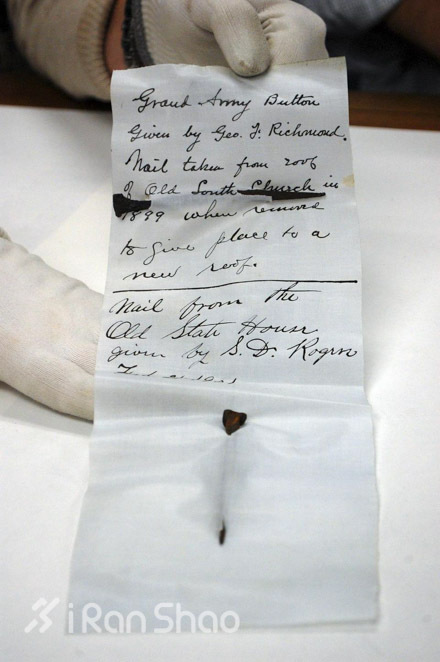 Grand Army Button
Given by Geo. F. Richmond.
Nail taken from roof
of Old South Church in
1899 when removed
to give place to a
new roof.
Nail from the
Old State House
given by S. D. Rogers
iRanShao